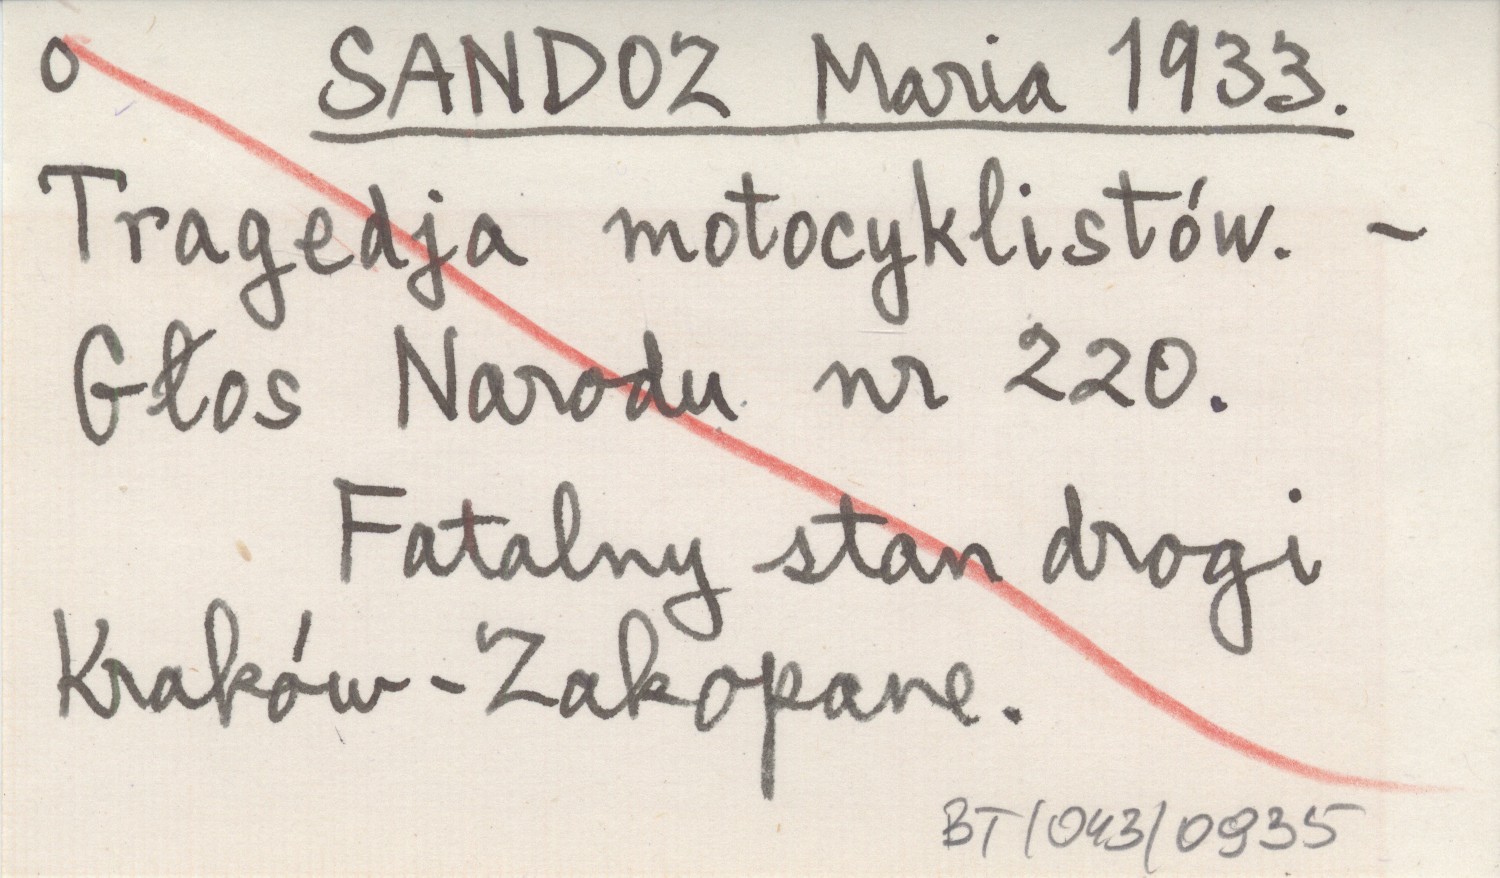 o SANDOZ Maria 1933.
Tragedja motocyklistów. -
Głos Narodu nr 220.
Fatalny stan drogi
Kraków-Zakopane.
BT/043/0935